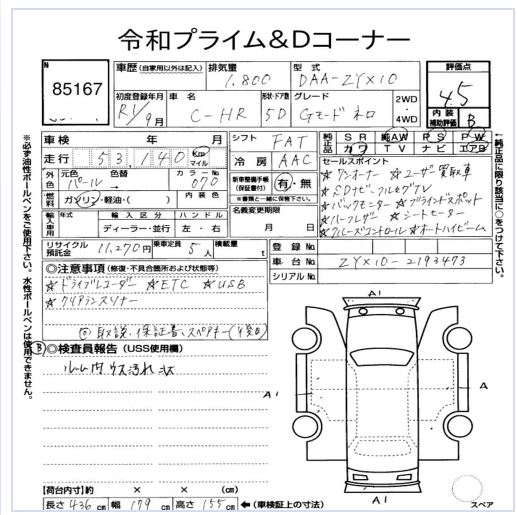 令和プライム&Dコーナー
N
85167
車歴 (自家用以外は記入) 排気量 型式
1,800 DAA-ZYX10
初度登録年月 車名 形状・ドア数 グレード
R1/9月 C-HR 5D Gモードネロ
2WD
4WD
評価点
4.5
内装補助評価 B
車検 年 月
走行 53,140 Km マイル
外色 元色 色替 カラーNo
パール→ 070
燃料 ガソリン・軽油・( )
シフト FAT
冷房 AAC
新車整備手帳(保証書付) 有・無
※書類と一緒に保管下さい。
名義変更期限
月 日
純正品 SR 純AW PS PW
カワ TV ナビ エアB
←純正品に限り該当に○をつけて下さい。
セールスポイント
☆ワンオーナー ☆ユーザー買取車
☆SDナビ・フルセグTV
☆バックモニター ☆ブラインドスポット
☆ハーフレザー ☆シートヒーター
☆クルーズコントロール ☆オートハイビーム
輸入車用 年式 輸入区分 ハンドル
ディーラー・並行 左・右
リサイクル預託金 11,270円 乗車定員 5人 積載量 t
登録No.
車台No. ZYX10-2193473
シリアルNo.
◎注意事項 (修復・不具合箇所および状態等)
☆ドライブレコーダー ☆ETC ☆USB
☆クリアランスソナー
取説、保証書、スペアキー
B ◎検査員報告 (USS使用欄)
ルーム内 ウス汚れ
A1
A1
A
A1
スペア
【荷台内寸】約 × × (cm)
長さ 436 cm 幅 179 cm 高さ 155 cm ←(車検証上の寸法)
※必ず油性ボールペンをご使用下さい。水性ボールペンは使用できません。